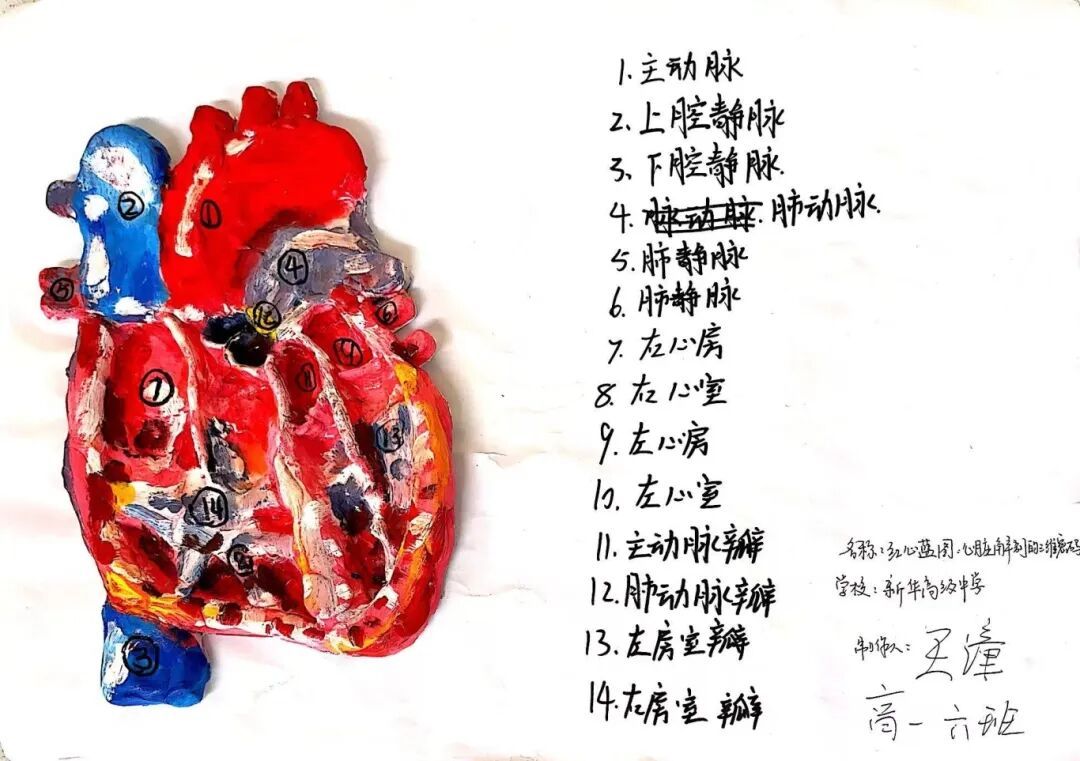 ②
①
④
⑤
⑫
⑥
⑦
⑪
⑨
⑬
⑭
⑧
③
1. 主动脉
2. 上腔静脉
3. 下腔静脉.
4. 肺动脉.
5. 肺静脉
6. 肺静脉
7. 右心房
8. 右心室
9. 左心房
10. 左心室
11. 主动脉瓣
12. 肺动脉瓣
13. 左房室瓣
14. 右房室瓣
名称:红心蓝图:心脏解剖的三维密码
学校:新华高级中学
制作人:王
高一六班